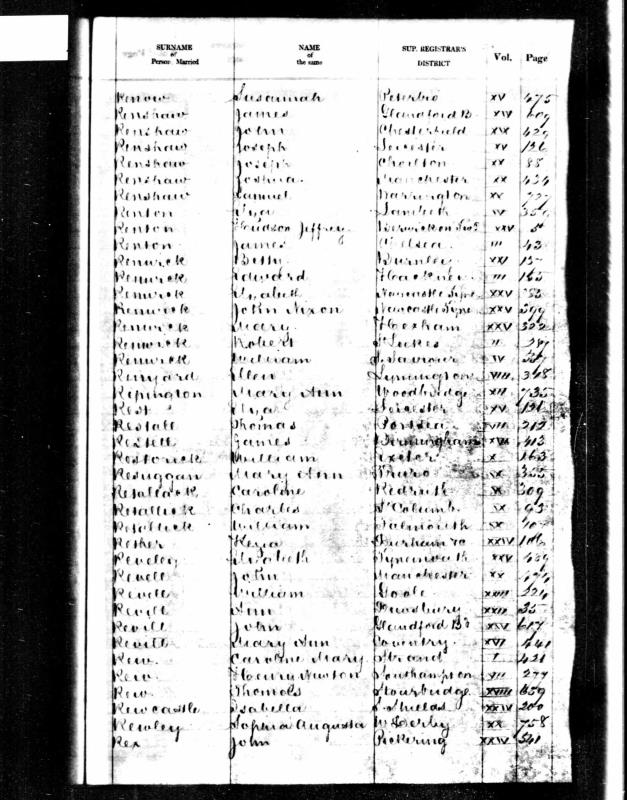 SURNAME of Person Married NAME of the same SUP. REGISTRAR'S DISTRICT Vol. Page
Renow Susannah Peterbro XV 475
Renshaw James Glandford B. XIV 609
Renshaw John Chesterfield XIX 429
Renshaw Joseph Leicester XV 136
Renshaw Joseph Chorlton XX 88
Renshaw Joshua Manchester XX 434
Renshaw Samuel Warrington XX
Renton Eliza Lambeth IV
Renton Hudson Jeffrey Berwick on XXV
Renton James Chelsea III 43
Renwick Betty Burnley XXI
Renwick Edward Hackney III 165
Renwick Elizabeth Newcastle Tyne XXV
Renwick John Nixon Newcastle Tyne XXV 399
Renwick Mary Hexham XXV 322
Renwick Robert St Lukes II
Renwick William St Saviour IV
Renyard Ellen Lymington VIII 348
Repington Mary Ann Woodbridge XII 735
Rest Eliza Leicester XV 131
Restall Thomas Portsea VII 212
Restell James Birmingham XVI 413
Restorick William Exeter X 163
Resuggan Mary Ann Truro IX 355
Retallack Caroline Redruth IX 309
Retallick Charles St Columb IX 93
Retallick William Falmouth IX
Rether Keza Durham XXIV 106
Reveley Elizabeth Tynemouth XXV
Revell John Manchester XX 474
Revell William Goole XXIII 224
Revill Ann Dewsbury XXII 35
Revill John Glandford Bg XIV 617
Revitt Mary Ann Coventry XVI 441
Rew Caroline Mary Strand I 421
Rew Henry Newton Southampton VIII 277
Rew Thomas Stourbridge XVIII 659
Rewcastle Isabella S. Shields XXIV 200
Rewley Sophia Augusta W Derby XX 758
Rex John Pickering XXIV 541